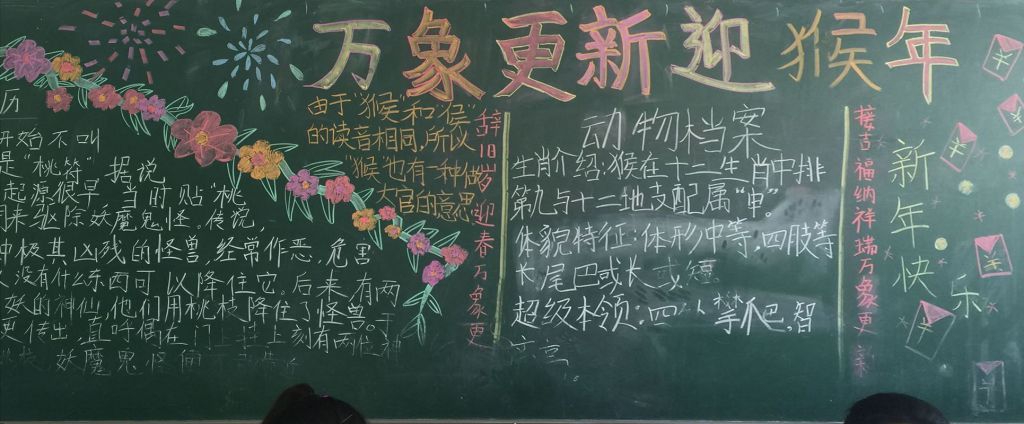 万象更新迎猴年
历
开始不叫
是"桃符"据说
起源很早当时贴桃
来驱除妖魔鬼怪。传说,
中极其凶残的怪兽,经常作恶,危害
没有什么东西可以降住它。后来有两
妖的神仙,他们用桃枝降住了怪兽。
传出,直
上刻有两位神
妖魔鬼怪
由于"猴"和"侯"
的读音相同,所以
"猴"也有一种做
大官的意思
辞旧岁迎春万象更
动物档案
生肖介绍:猴在十二生肖中排
第九与十二地支配属"申"。
体貌特征:体形中等,四肢等
长,尾巴或长或短
超级本领:四 攀爬,智
高
接吉福纳祥瑞万象更新
新年快乐